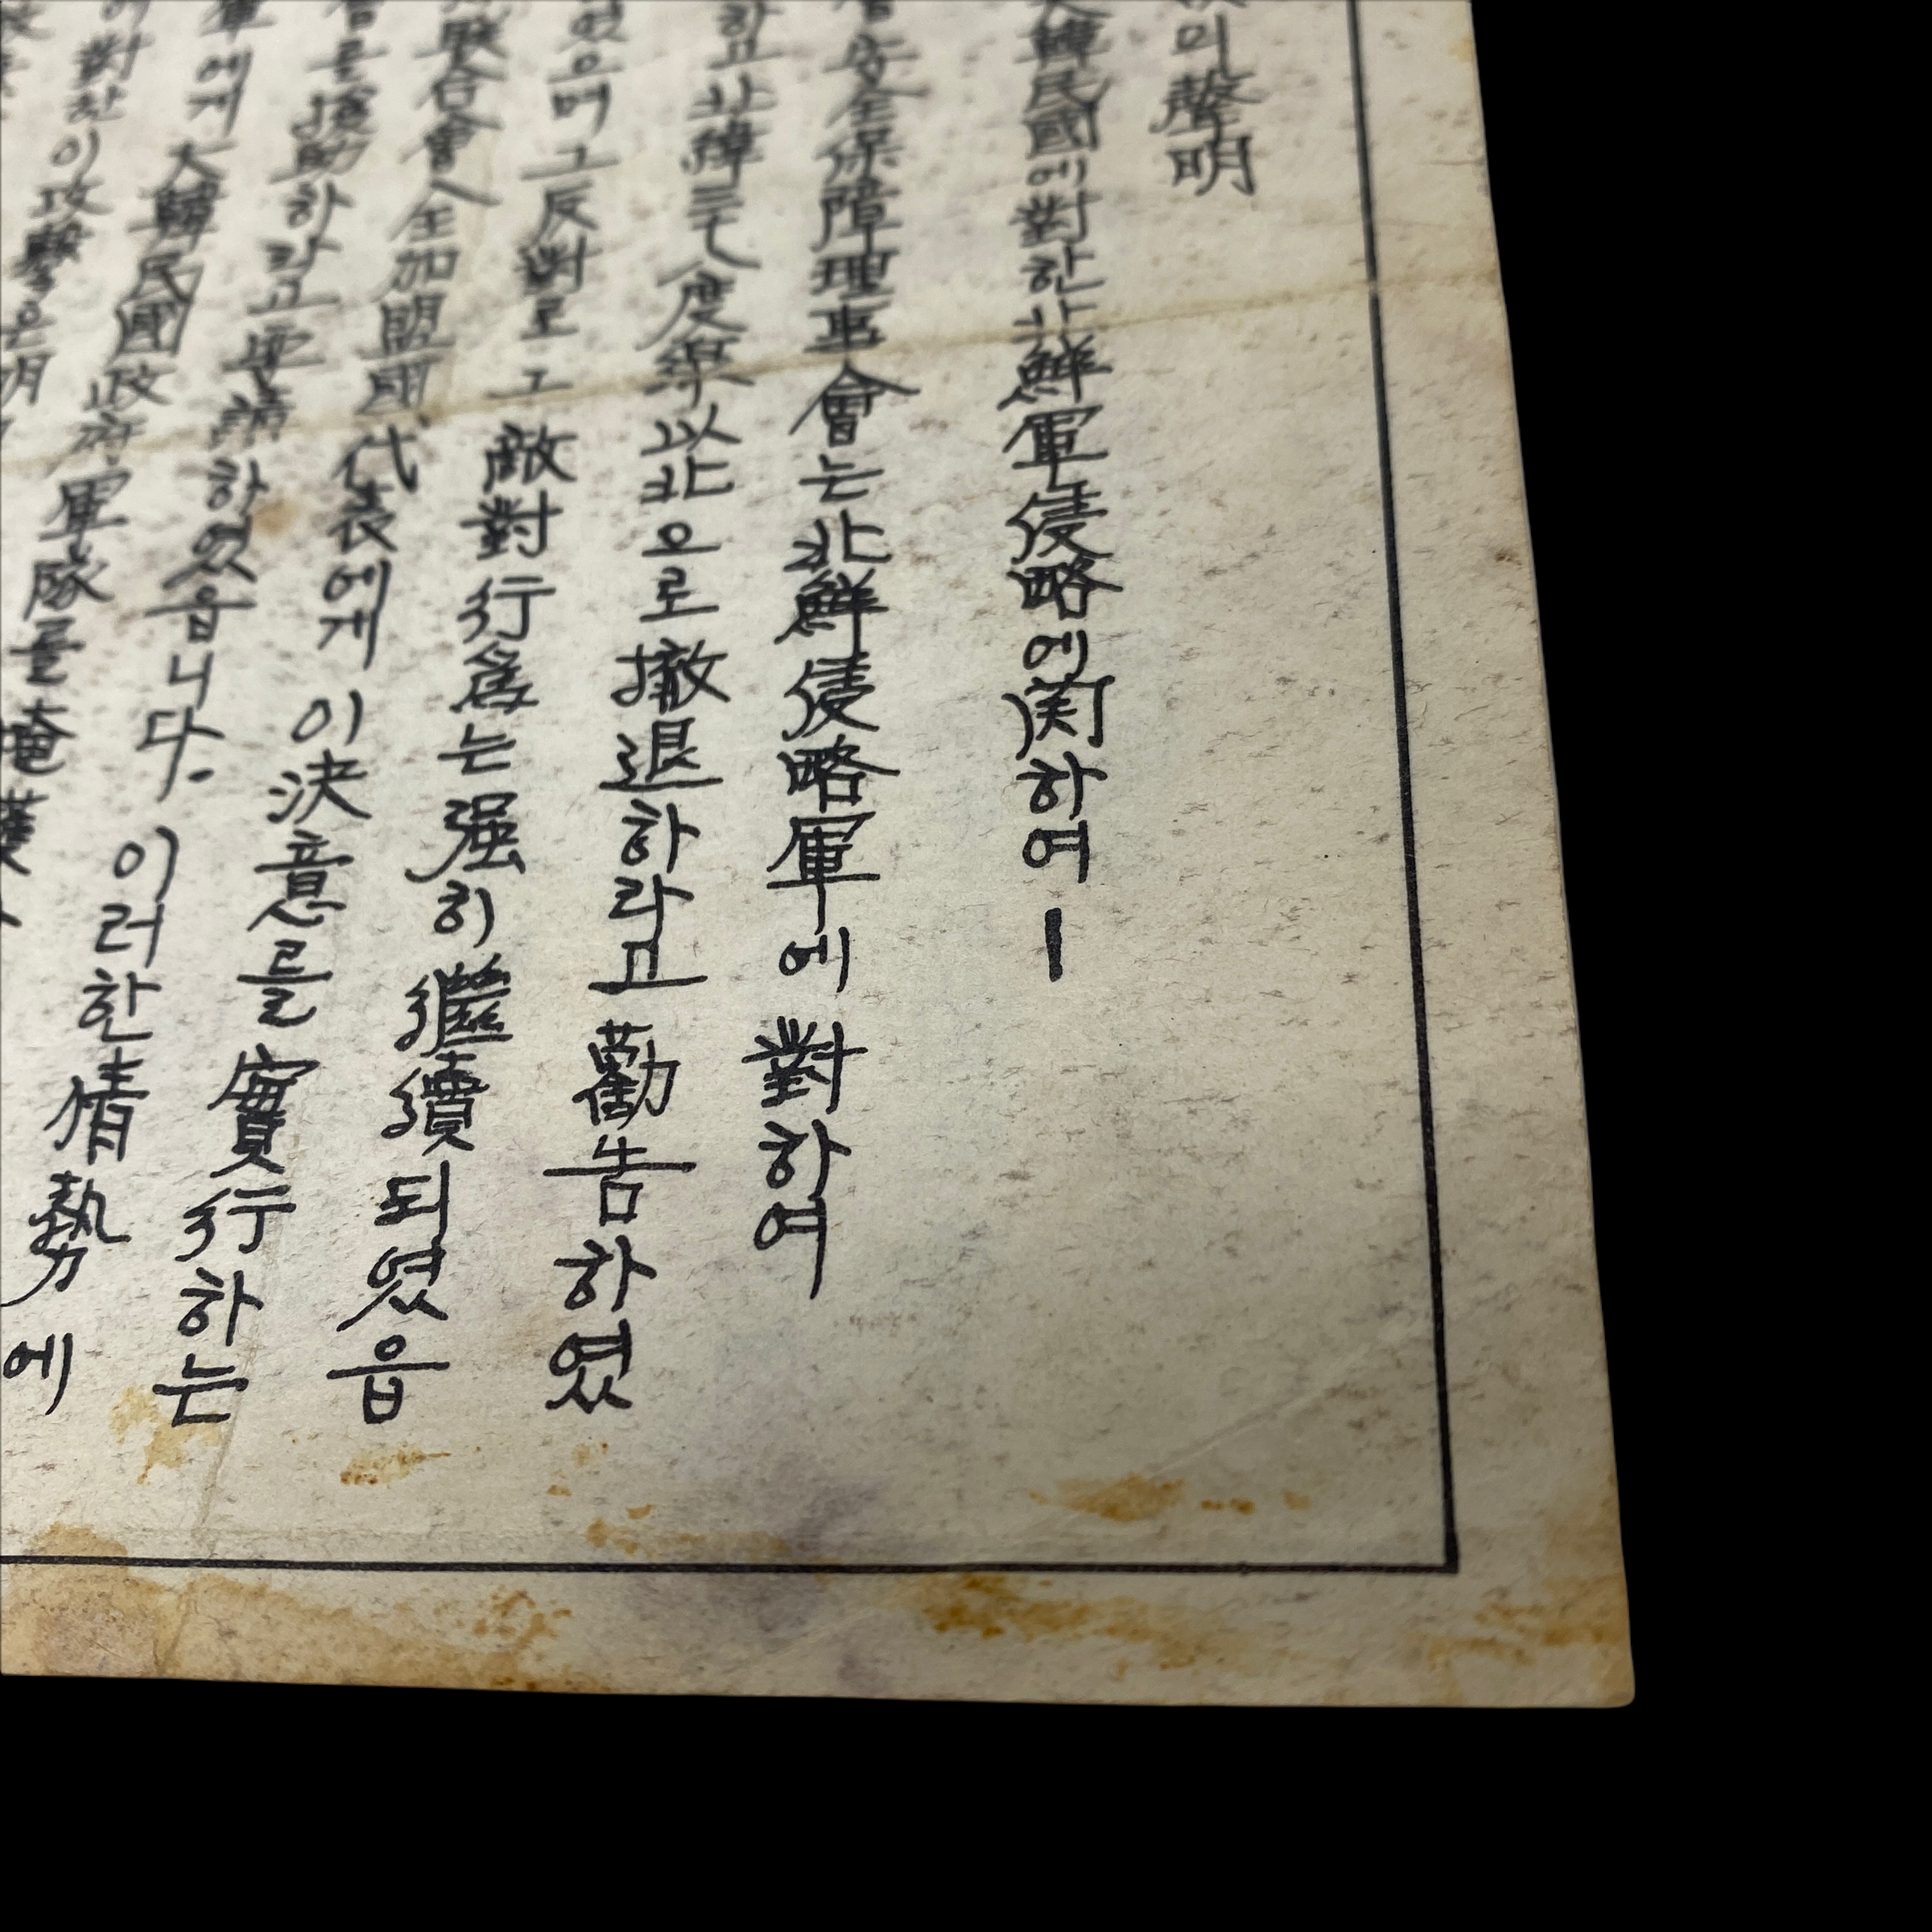 의 聲明
大韓民國에 對한 北鮮軍侵略에 関하여 ー
安全保障理事會는 北鮮侵略軍에 對하여
하고 北緯 三八度線以北으로 撤退하라고 勸告하였
였으며 그 反對로 그 敵對行爲는 强히 繼續되였읍
聯合會全加盟國 代表에게 이 決意를 實行하는
를 援助하라고 要請하였읍니다. 이러한 情勢에
에게 大韓民國政府軍隊를 掩護
對한 이 攻擊은 明